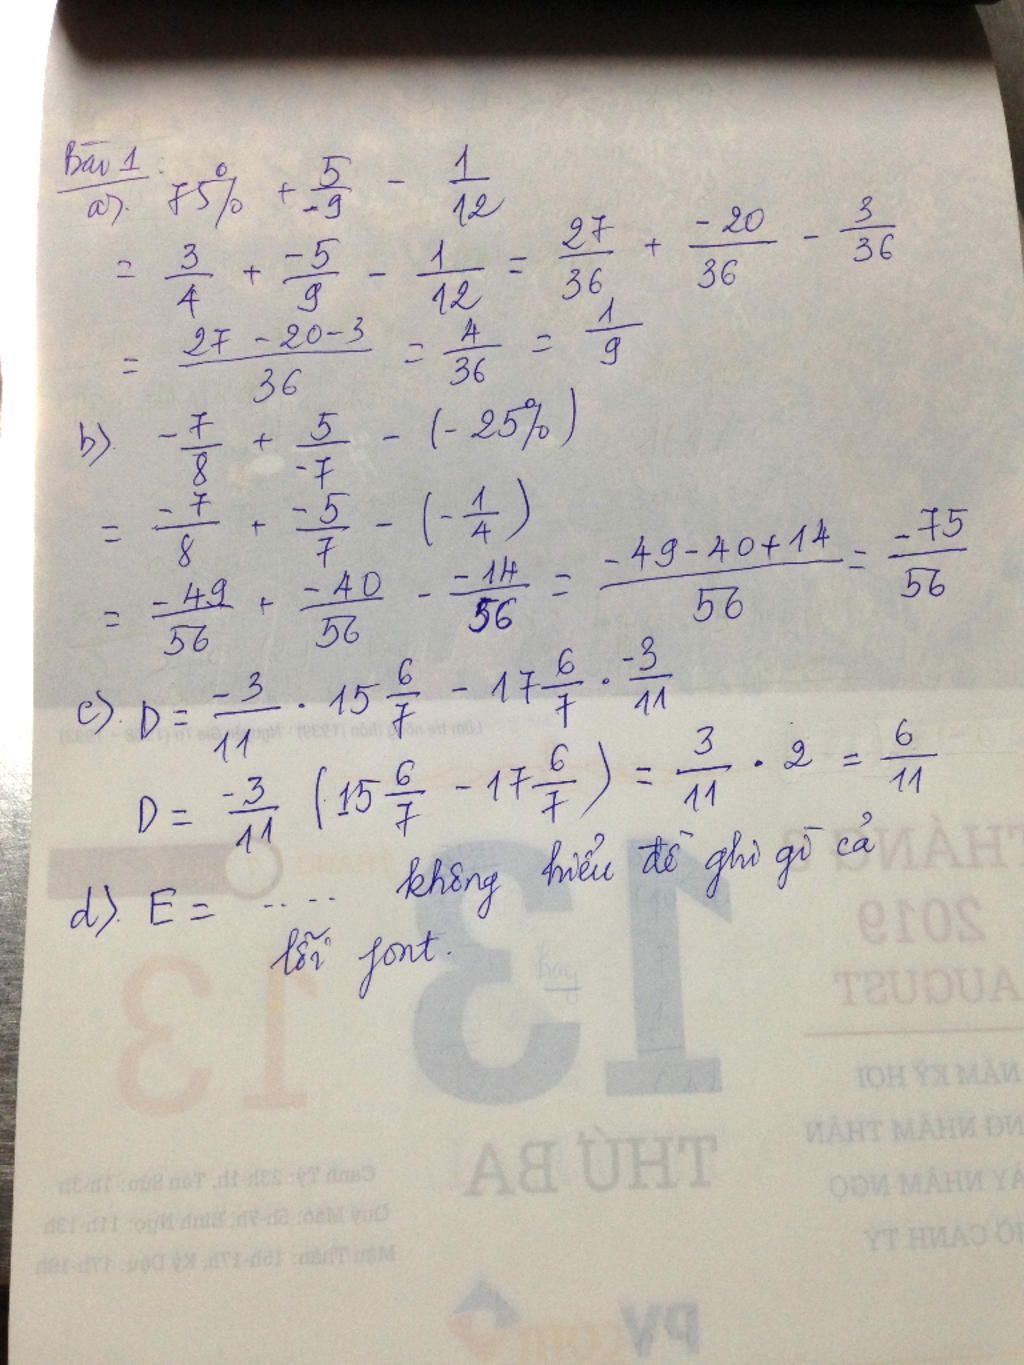 Bài 1:
a). 75% + 5/-9 - 1/12
= 3/4 + -5/9 - 1/12 = 27/36 + -20/36 - 3/36
= 27 - 20 - 3/36 = 4/36 = 1/9
b). -7/8 + 5/-7 - (-25%)
= -7/8 + -5/7 - (-1/4)
= -49/56 + -40/56 - -14/56 = -49-40+14/56 = -75/56
c). D = -3/11 . 15 6/7 - 17 6/7 . -3/11
D = -3/11 (15 6/7 - 17 6/7) = 3/11 . 2 = 6/11
d). E = ..... không hiểu đề ghi gì cả
lỗi font.
13
THÁNG 8
2019
AUGUST
13
THỨ BA
NĂM KỶ HỢI
NG NHÂM THÂN
ÀY NHÂM NGỌ
IỜ CANH TÝ
Canh Tý: 23h-1h, Tân Sửu: 1h-3h
Quý Mão: 5h-7h, Bính Ngọ: 11h-13h
Mậu Thân: 15h-17h, Kỷ Dậu: 17h-19h
PV
com